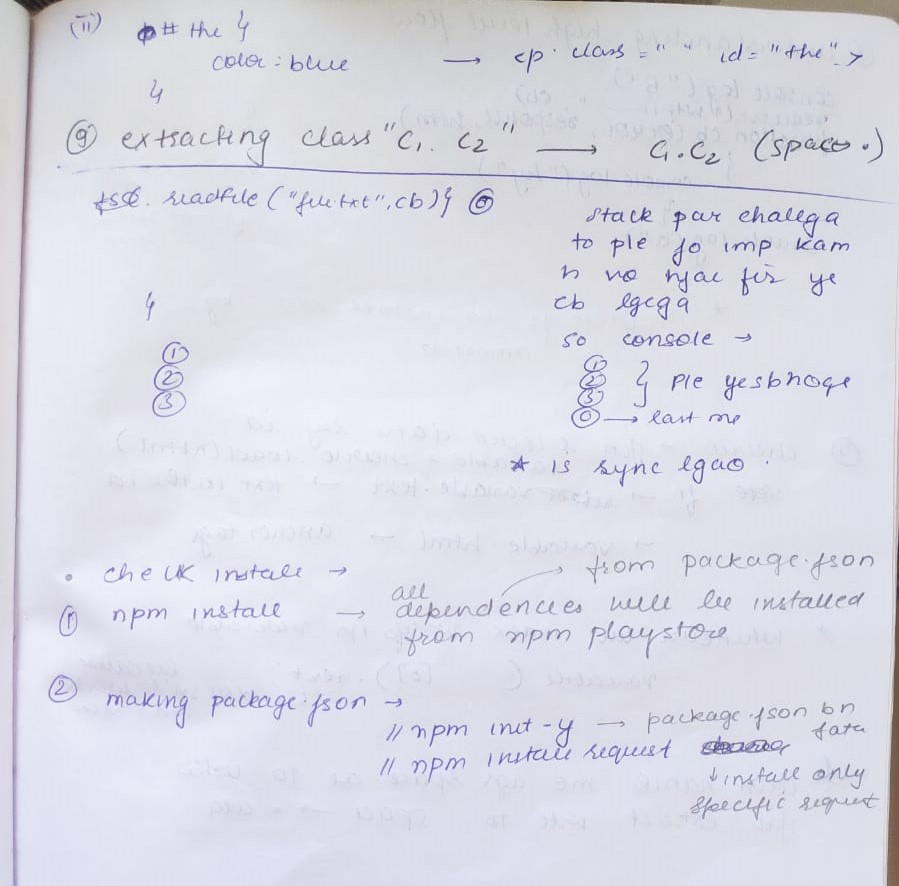 (ii) # the {
color : blue → <p class = " " id = "the" >
}
⑨ extracting class "C1. C2" → C1.C2 (space .)
readfile ("file.txt", cb) { ⓪
}
①
②
③
stack par chalega
to ple jo imp kam
h vo hjae fir ye
cb lgega
so console →
①
② } ple yesbhoge
③
⓪ → last me
* is sync lgao .
• check install → from package.json
① npm install → all dependencies will be installed
from npm playstore
② making package.json →
// npm init -y → package.json bn jata
// npm install request
↓ install only
specific request